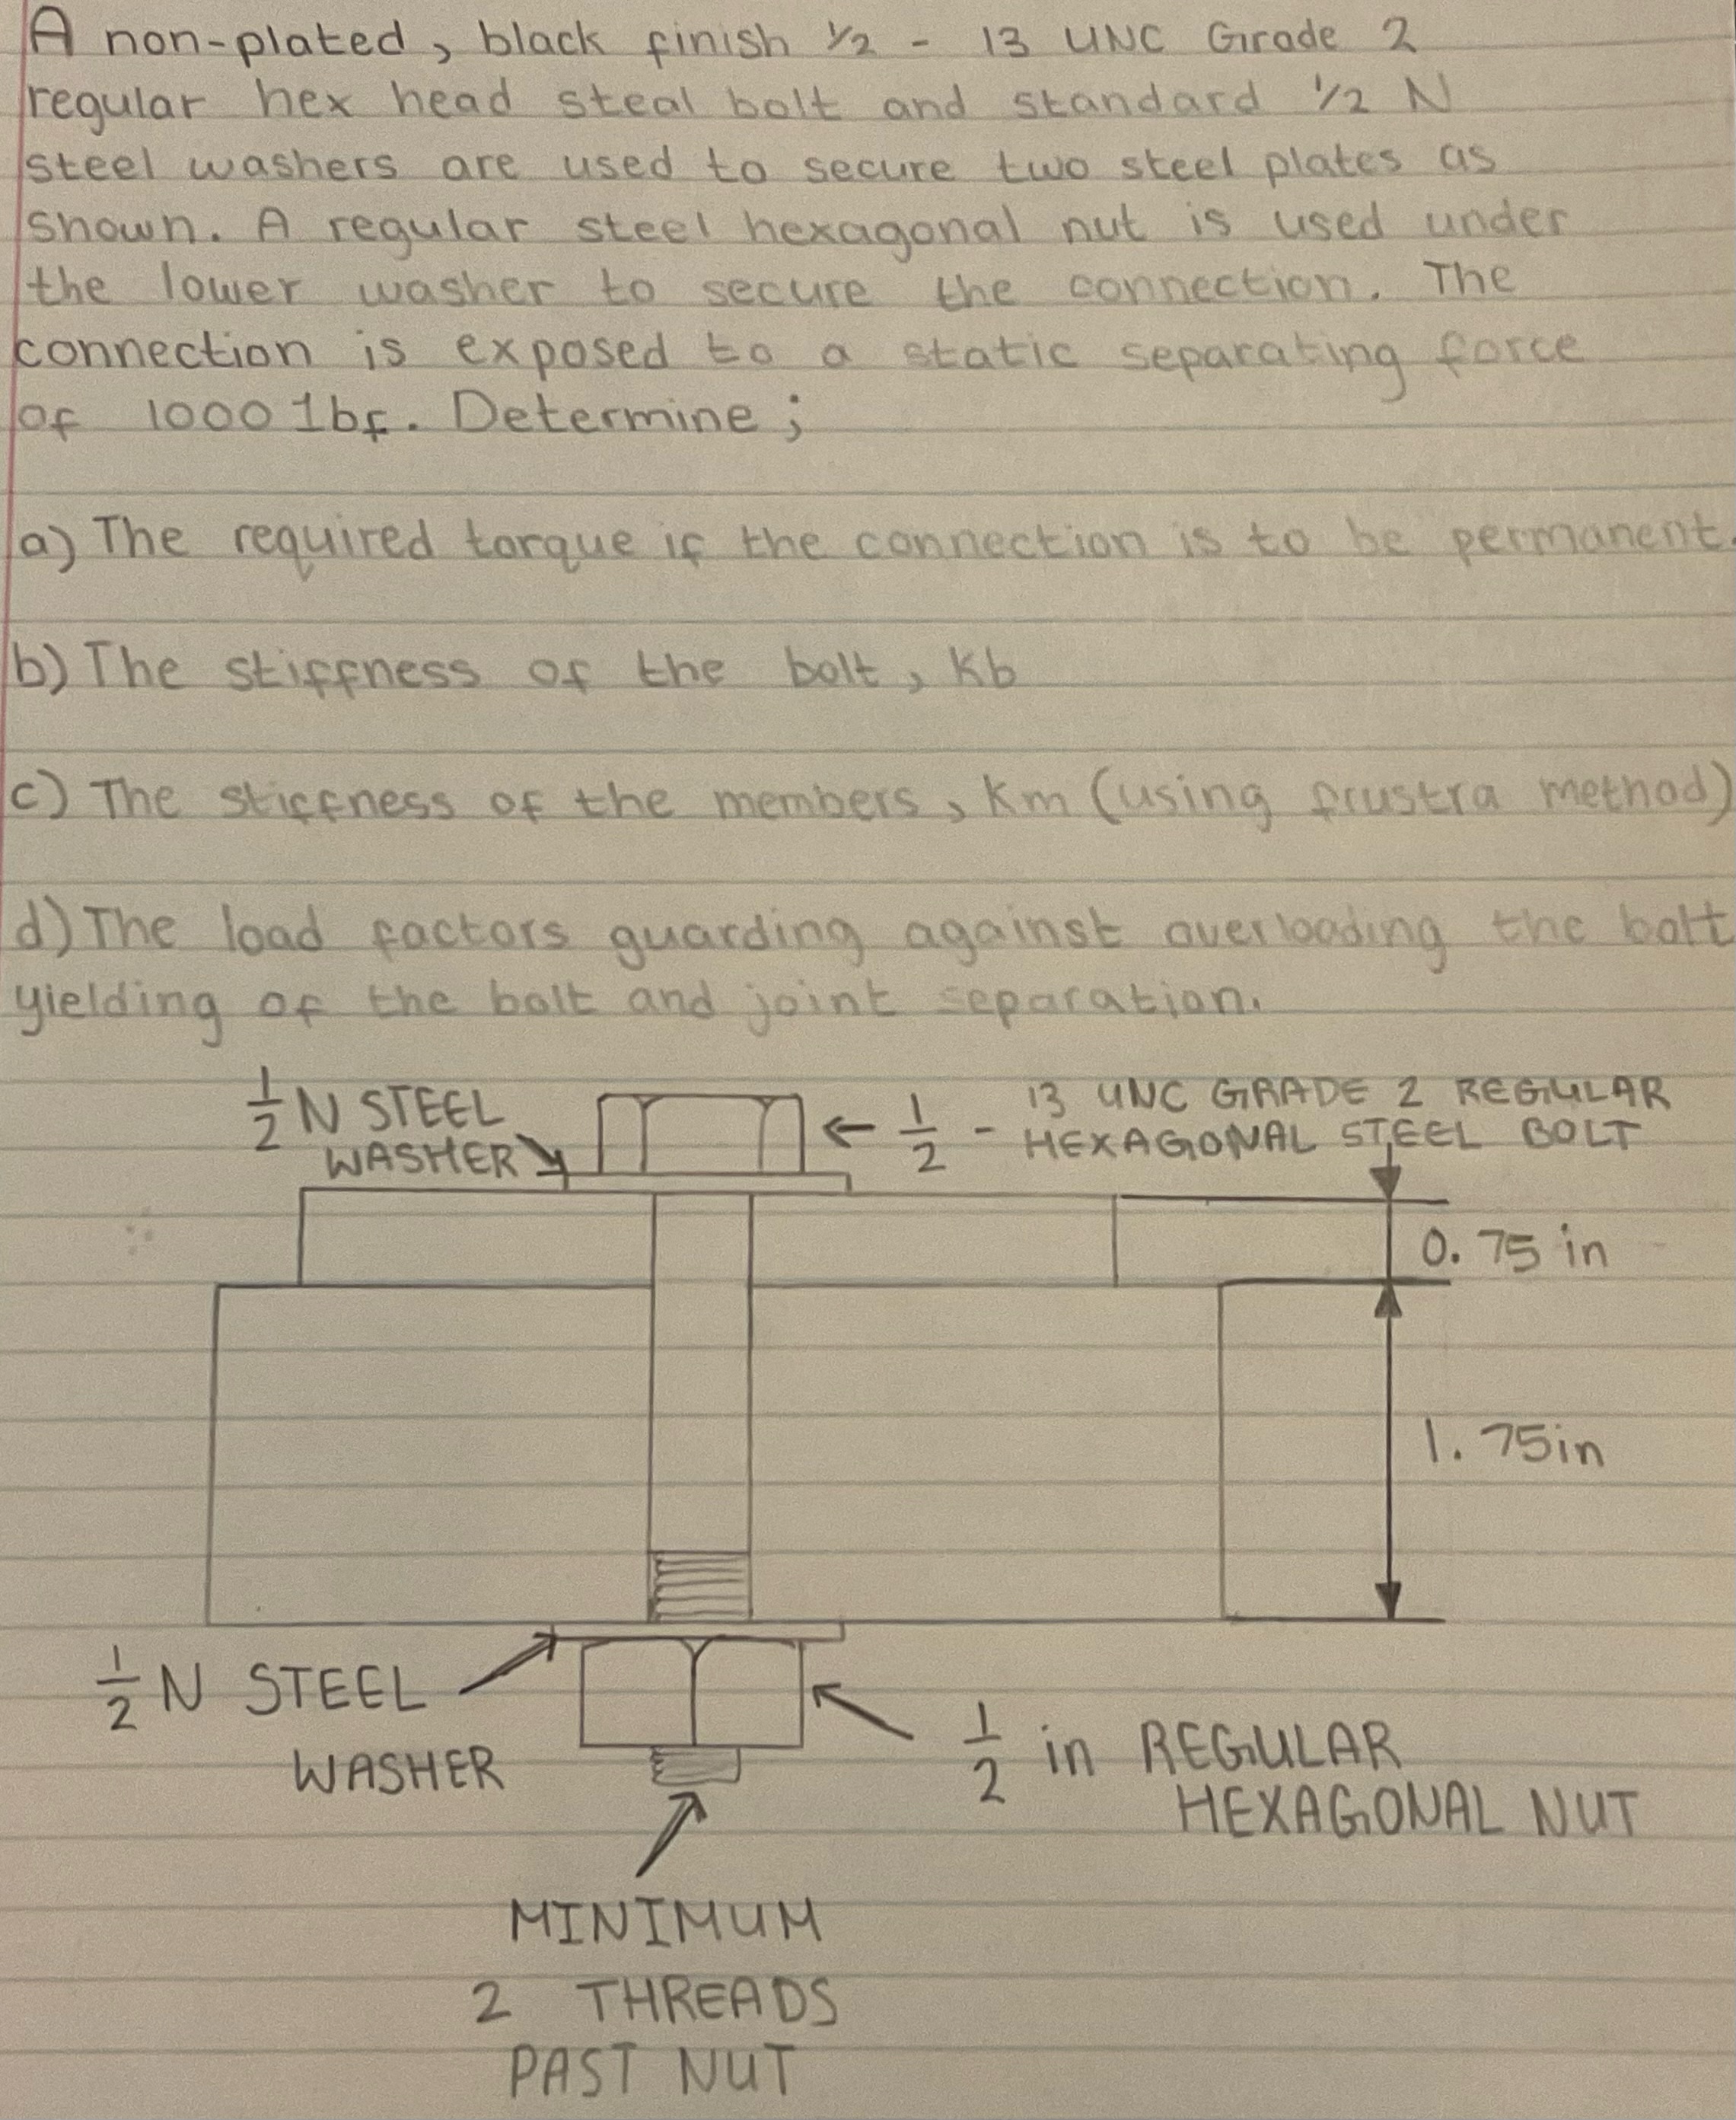 A non-plated, black finish 1/2 - 13 UNC Grade 2
regular hex head steal bolt and standard 1/2 N
steel washers are used to secure two steel plates as
shown. A regular steel hexagonal nut is used under
the lower washer to secure the connection. The
connection is exposed to a static separating force
of 1000 lbf. Determine;
a) The required torque if the connection is to be permanent.
b) The stiffness of the bolt, Kb
c) The stiffness of the members, Km (using frustra method)
d) The load factors guarding against overloading the bolt
yielding of the bolt and joint separation.
1/2 N STEEL
WASHER
1/2 - 13 UNC GRADE 2 REGULAR
HEXAGONAL STEEL BOLT
0.75 in
1.75in
1/2 N STEEL
WASHER
1/2 in REGULAR
HEXAGONAL NUT
MINIMUM
2 THREADS
PAST NUT